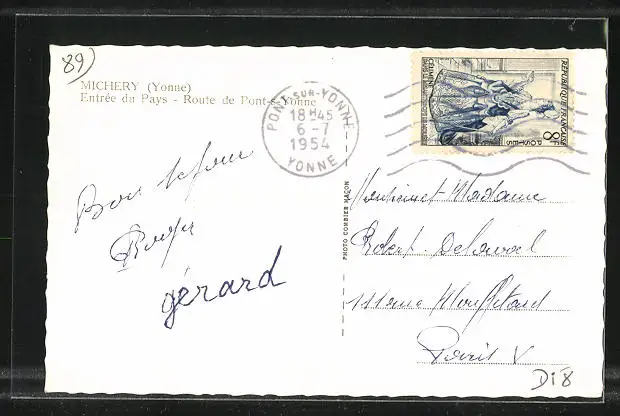 89)
MICHERY (Yonne)
Entrée du Pays - Route de Pont-s-Yonne
PONT-SUR-YONNE
18H45
6-7
1954
YONNE
REPUBLIQUE FRANÇAISE
8F
POSTES
Bon séjour
Roger
gérard
PHOTO COMBIER MACON
Monsieur et Madame
Robert
111 rue Mouffetard
Paris V
D18